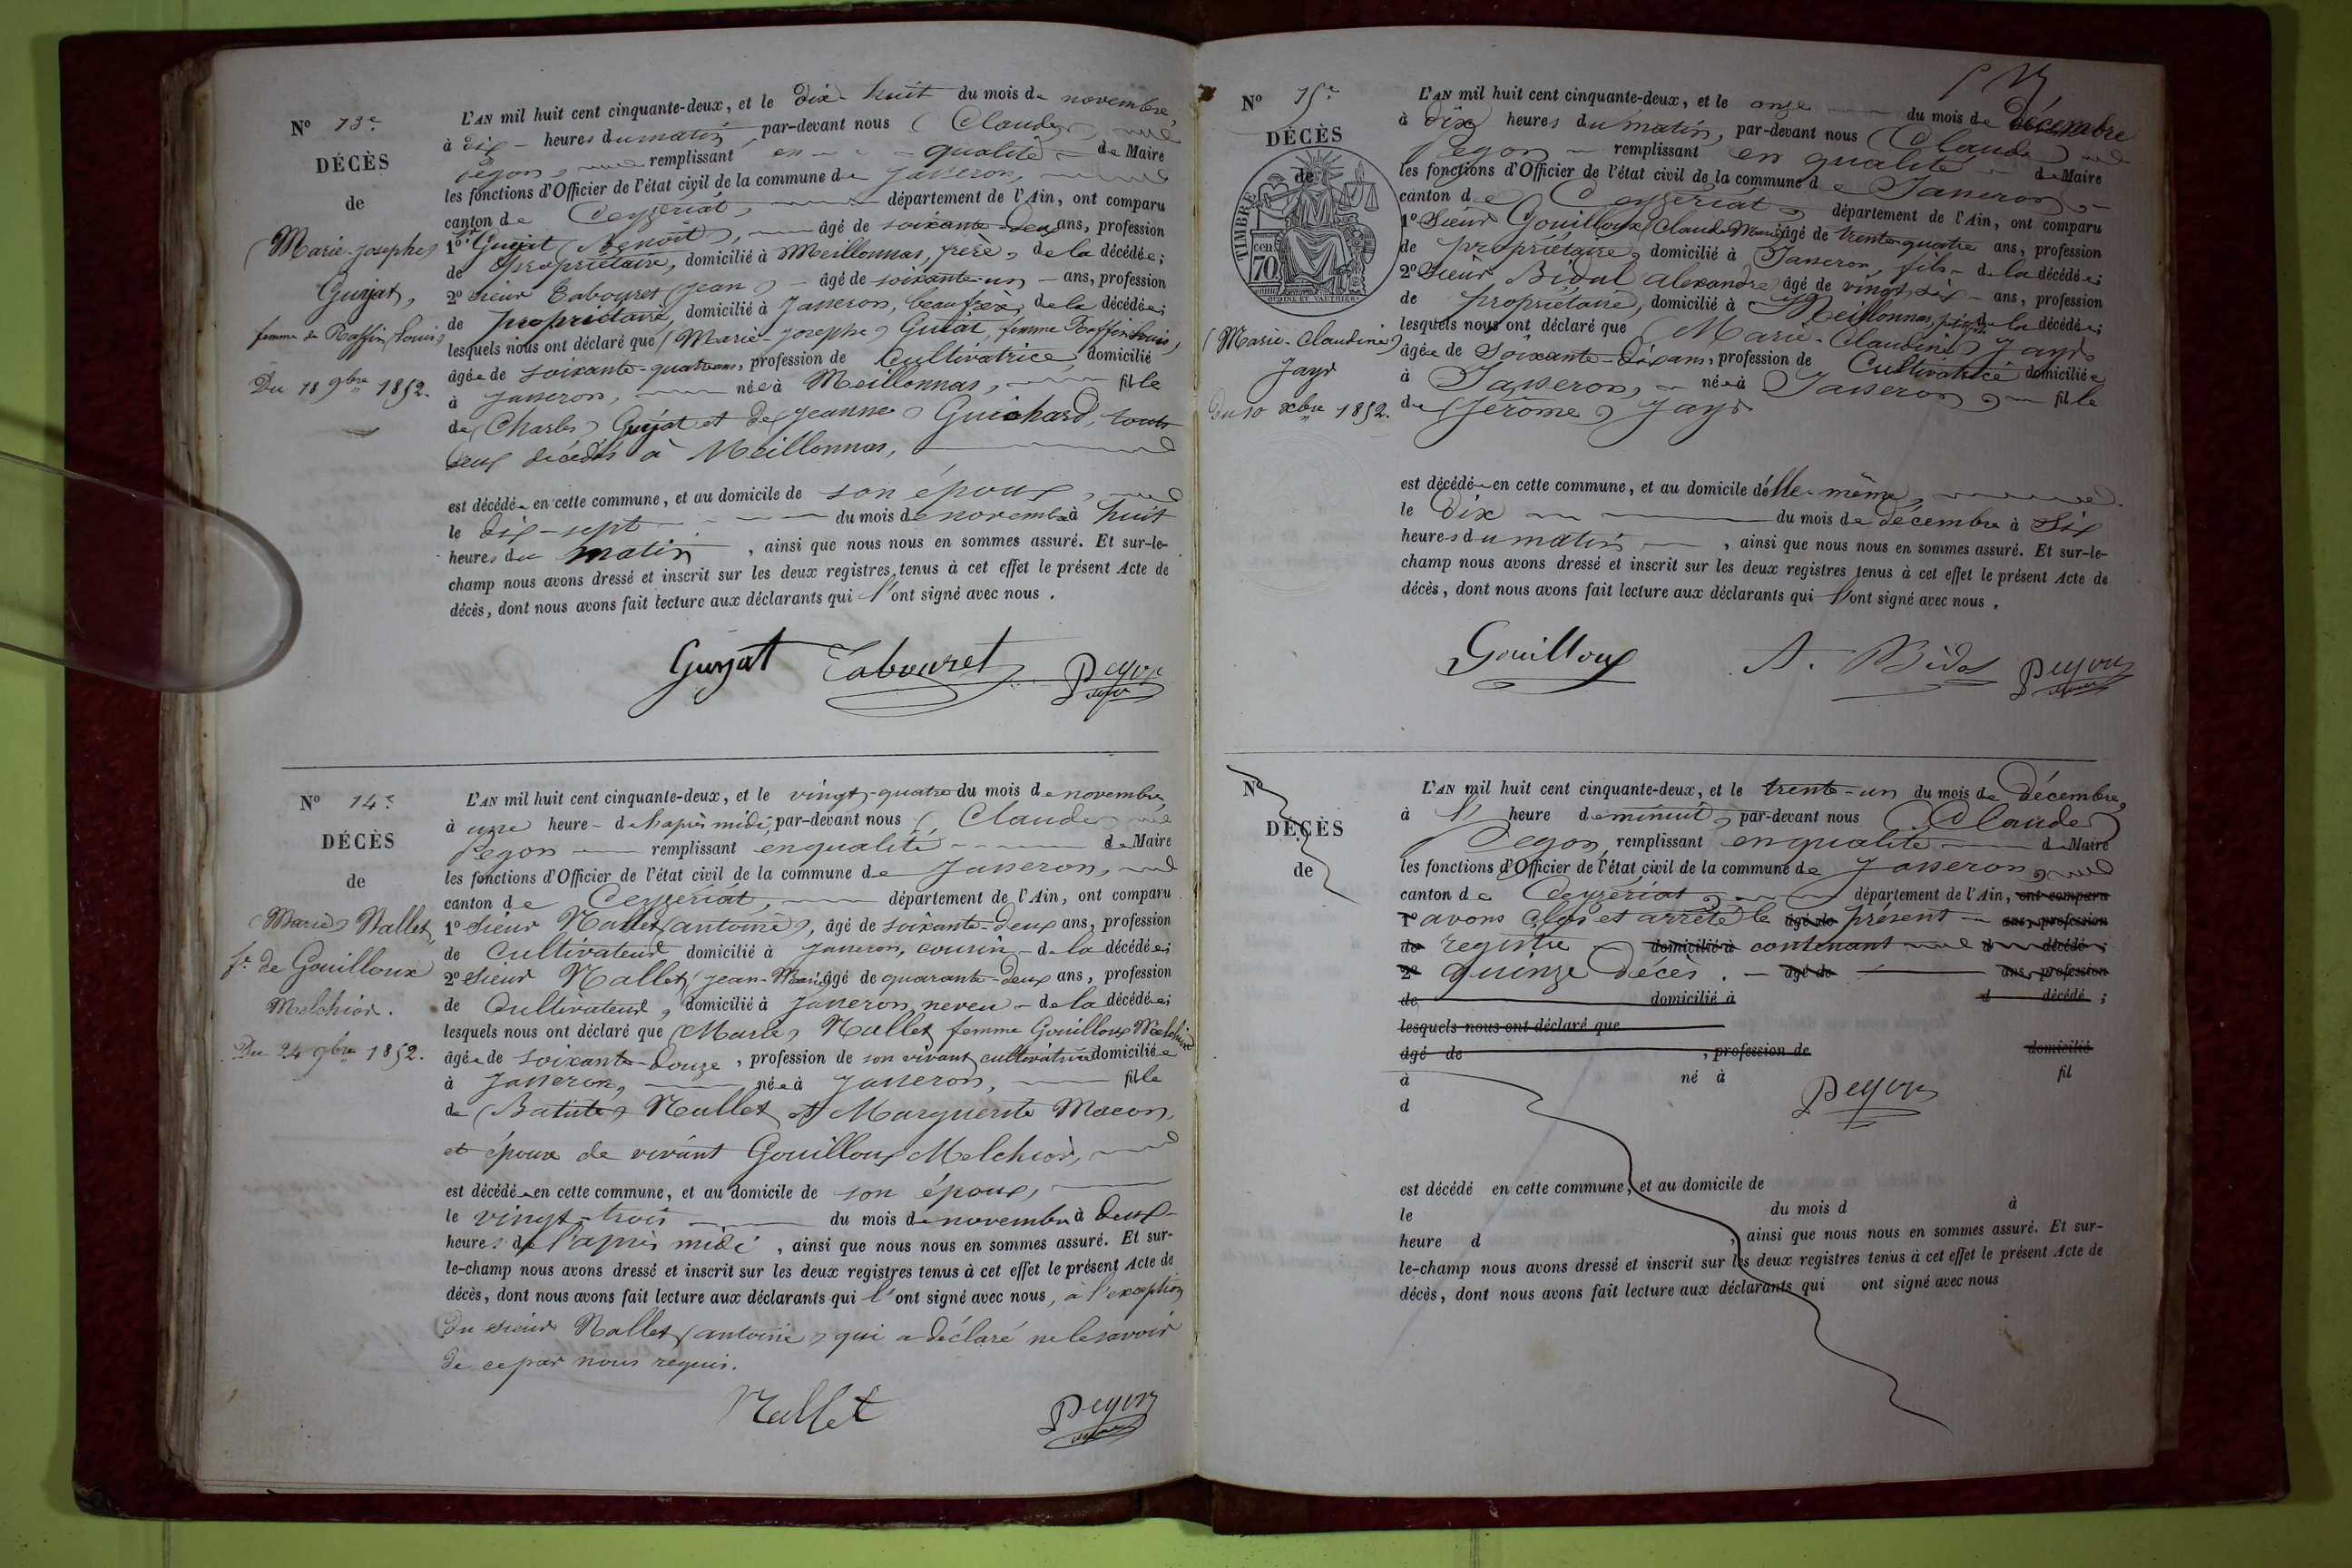 Nº 13e
DÉCÈS
de
(Marie-Josephe)
Guyat,
femme de Raffin Louis
Du 18 9bre 1852.
L'AN mil huit cent cinquante-deux, et le dix-huit du mois de novembre,
à dix heures du matin, par-devant nous (Claude)
Pegon, remplissant en qualité de Maire
les fonctions d'Officier de l'état civil de la commune de Jasseron,
canton de Ceyzériat, département de l'Ain, ont comparu
1º Sr Guyat (Benoit), âgé de soixante-deux ans, profession
de propriétaire, domicilié à Meillonnas, frère, de la décédée;
2º Sieur Tabouret (Jean) âgé de soixante-un ans, profession
de propriétaire, domicilié à Jasseron, beau frère, de la décédée;
lesquels nous ont déclaré que (Marie-Josephe) Guyat, femme Raffin Louis,
âgée de soixante-quatre ans, profession de Cultivatrice, domicilié
à Jasseron, née à Meillonnas, fille
de (Charles) Guyat et de (Jeanne) Guichard, tous
deux décédés à Meillonnas,
est décédée en cette commune, et au domicile de son époux,
le dix-sept du mois de novembre à huit
heures du matin, ainsi que nous nous en sommes assuré. Et sur-le-
champ nous avons dressé et inscrit sur les deux registres tenus à cet effet le présent Acte de
décès, dont nous avons fait lecture aux déclarants qui l'ont signé avec nous.
Guyat Tabouret Pegon
Nº 14e
DÉCÈS
de
(Marie) Nallet,
fe de Gouilloux
Melchior.
Du 24 9bre 1852.
L'AN mil huit cent cinquante-deux, et le vingt-quatre du mois de novembre,
à une heure de l'après midi, par-devant nous (Claude)
Pegon remplissant en qualité de Maire
les fonctions d'Officier de l'état civil de la commune de Jasseron,
canton de Ceyzériat, département de l'Ain, ont comparu
1º Sieur Nallet (antoine), âgé de soixante-deux ans, profession
de Cultivateur domicilié à Jasseron, cousin de la décédée;
2º Sieur Nallet (Jean-Marie) âgé de quarante-deux ans, profession
de Cultivateur, domicilié à Jasseron, neveu de la décédée;
lesquels nous ont déclaré que (Marie) Nallet, femme Gouilloux Melchior
âgée de soixante-douze, profession de son vivant cultivatrice domiciliée
à Jasseron, née à Jasseron, fille
de (Batiste) Nallet et Marguerite Macon,
et épouse de vivant Gouilloux Melchior,
est décédée en cette commune, et au domicile de son époux,
le vingt-trois du mois de novembre à deux
heures de l'après midi, ainsi que nous nous en sommes assuré. Et sur-
le-champ nous avons dressé et inscrit sur les deux registres tenus à cet effet le présent Acte de
décès, dont nous avons fait lecture aux déclarants qui l'ont signé avec nous, à l'exception
du sieur Nallet (antoine) qui a déclaré ne le savoir
de ce par nous requis.
Nallet Pegon
Nº 15e
DÉCÈS
de
TIMBRE
cent
70
(Marie-Claudine)
Jayr
Du 10 xbre 1852.
L'AN mil huit cent cinquante-deux, et le onze du mois de Décembre
à dix heures du matin, par-devant nous (Claude)
Pegon remplissant en qualité de Maire
les fonctions d'Officier de l'état civil de la commune de Jasseron,
canton de Ceyzériat, département de l'Ain, ont comparu
1º Sieur Gouilloux (Claude Marie) âgé de trente-quatre ans, profession
de propriétaire, domicilié à Jasseron, fils de la décédée;
2º Sieur Bidal alexandre âgé de vingt-six ans, profession
de propriétaire, domicilié à Meillonnas, de la décédée;
lesquels nous ont déclaré que (Marie-Claudine) Jayr
âgée de Soixante-dix ans, profession de Cultivatrice domiciliée
à Jasseron, née à Jasseron, fille
de (Jérôme) Jayr
est décédée en cette commune, et au domicile d'elle-même,
le Dix du mois de décembre à Six
heures du matin, ainsi que nous nous en sommes assuré. Et sur-le-
champ nous avons dressé et inscrit sur les deux registres tenus à cet effet le présent Acte de
décès, dont nous avons fait lecture aux déclarants qui l'ont signé avec nous.
Gouilloux A. Bidal Pegon
Nº
DÉCÈS
de
L'AN mil huit cent cinquante-deux, et le trente-un du mois de Décembre,
à heure de minuit, par-devant nous (Claude)
Pegon, remplissant en qualité de Maire
les fonctions d'Officier de l'état civil de la commune de Jasseron,
canton de Ceyzériat, département de l'Ain, ont comparu
1º avons clos et arrêté le âgé de présent ans, profession
de registre domicilié à contenant d décédé;
2º quinze Décès. âgé de ans, profession
de domicilié à d décédé;
lesquels nous ont déclaré que
âgé de, profession de domicilié
à né à fil
d
Pegon
est décédé en cette commune, et au domicile de
le du mois d à
heure d, ainsi que nous nous en sommes assuré. Et sur-
le-champ nous avons dressé et inscrit sur les deux registres tenus à cet effet le présent Acte de
décès, dont nous avons fait lecture aux déclarants qui ont signé avec nous